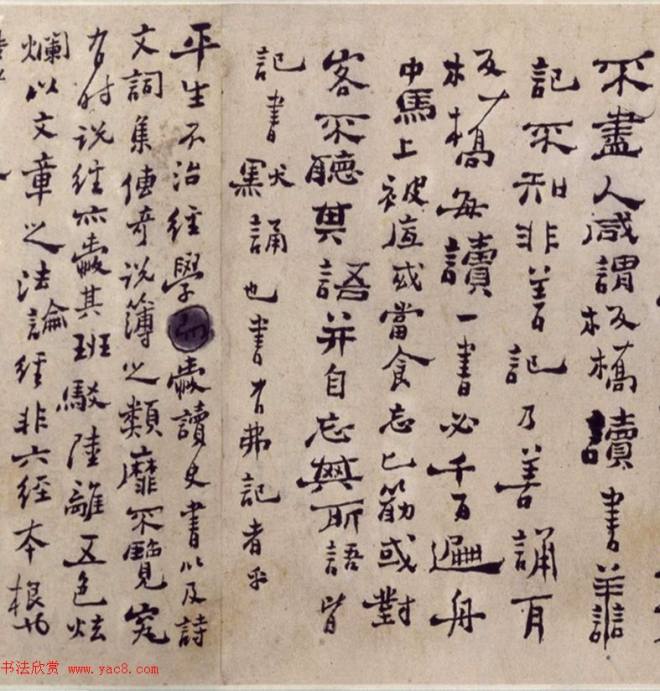 不盡人咸謂板橋讀書善
記不知非善記乃善誦耳
板橋每讀一書必千百遍舟
中馬上被底或當食忘匕筯或對
客不聽其語并自忘其所語皆
記書默誦也書有弗記者乎
平生不治經學愛讀史書以及詩
文詞集傳奇說簿之類靡不覽究
有時說經亦愛其班駁陸離五色炫
爛以文章之法論經非六經本根也
书法欣赏 www.yac8.com